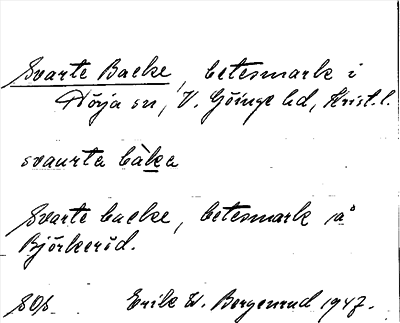 Svarte Backe, betesmark i
Nörja sn, V. Göinge hd, Krist. l.
svaurta bàka
Svarte backe, betesmark på
Björkeröd.
SOp. Erik W. Bergenrud 1947.